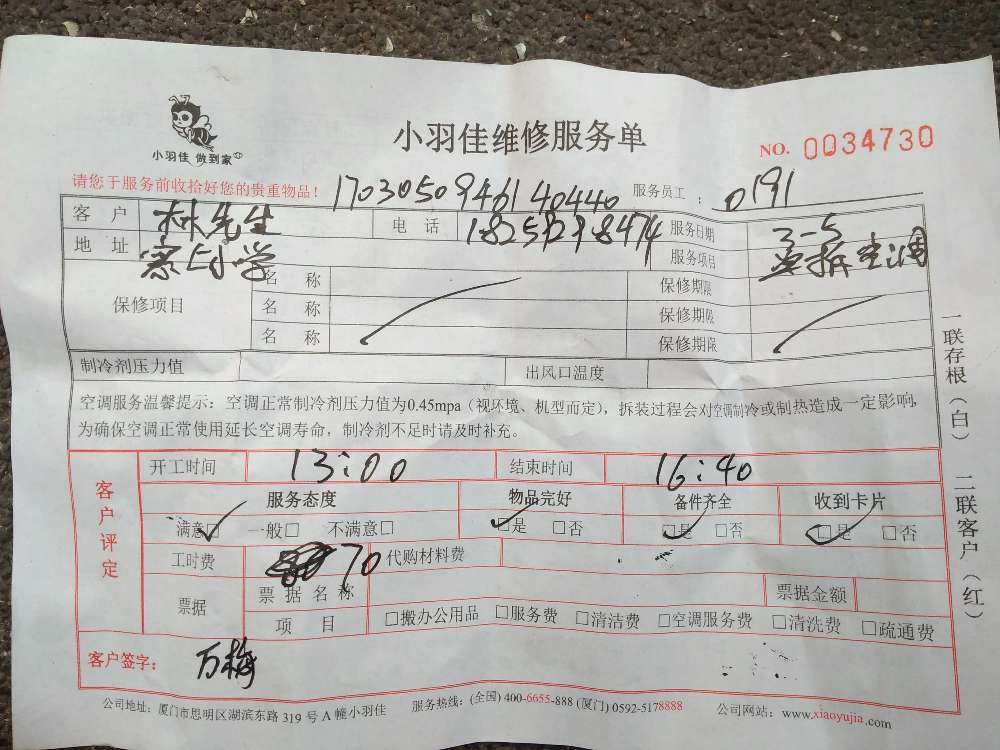 小羽佳 做到家
小羽佳维修服务单
NO. 0034730
请您于服务前收拾好您的贵重物品！ 17030509461 40440 服务员工： 0191
客户 林先生 电话 服务日期 3-5
地址 寨上小学 服务项目 拆空调
保修项目 名称 保修期限
名称 保修期限
名称 保修期限
制冷剂压力值 出风口温度
空调服务温馨提示：空调正常制冷剂压力值为0.45mpa（视环境、机型而定），拆装过程会对空调制冷或制热造成一定影响，
为确保空调正常使用延长空调寿命，制冷剂不足时请及时补充。
客户评定
开工时间 13:00 结束时间 16:40
服务态度 物品完好 备件齐全 收到卡片
满意□ 一般□ 不满意□ □是 □否 □是 □否 □是 □否
工时费 70 代购材料费
票据 票据名称 票据金额
项目 □搬办公用品 □服务费 □清洁费 □空调服务费 □清洗费 □疏通费
客户签字： 万梅
公司地址：厦门市思明区湖滨东路 319 号 A 幢小羽佳 服务热线：(全国) 400-6655-888 (厦门) 0592-5178888 公司网站：www.xiaoyujia.com
一联存根（白） 二联客户（红）